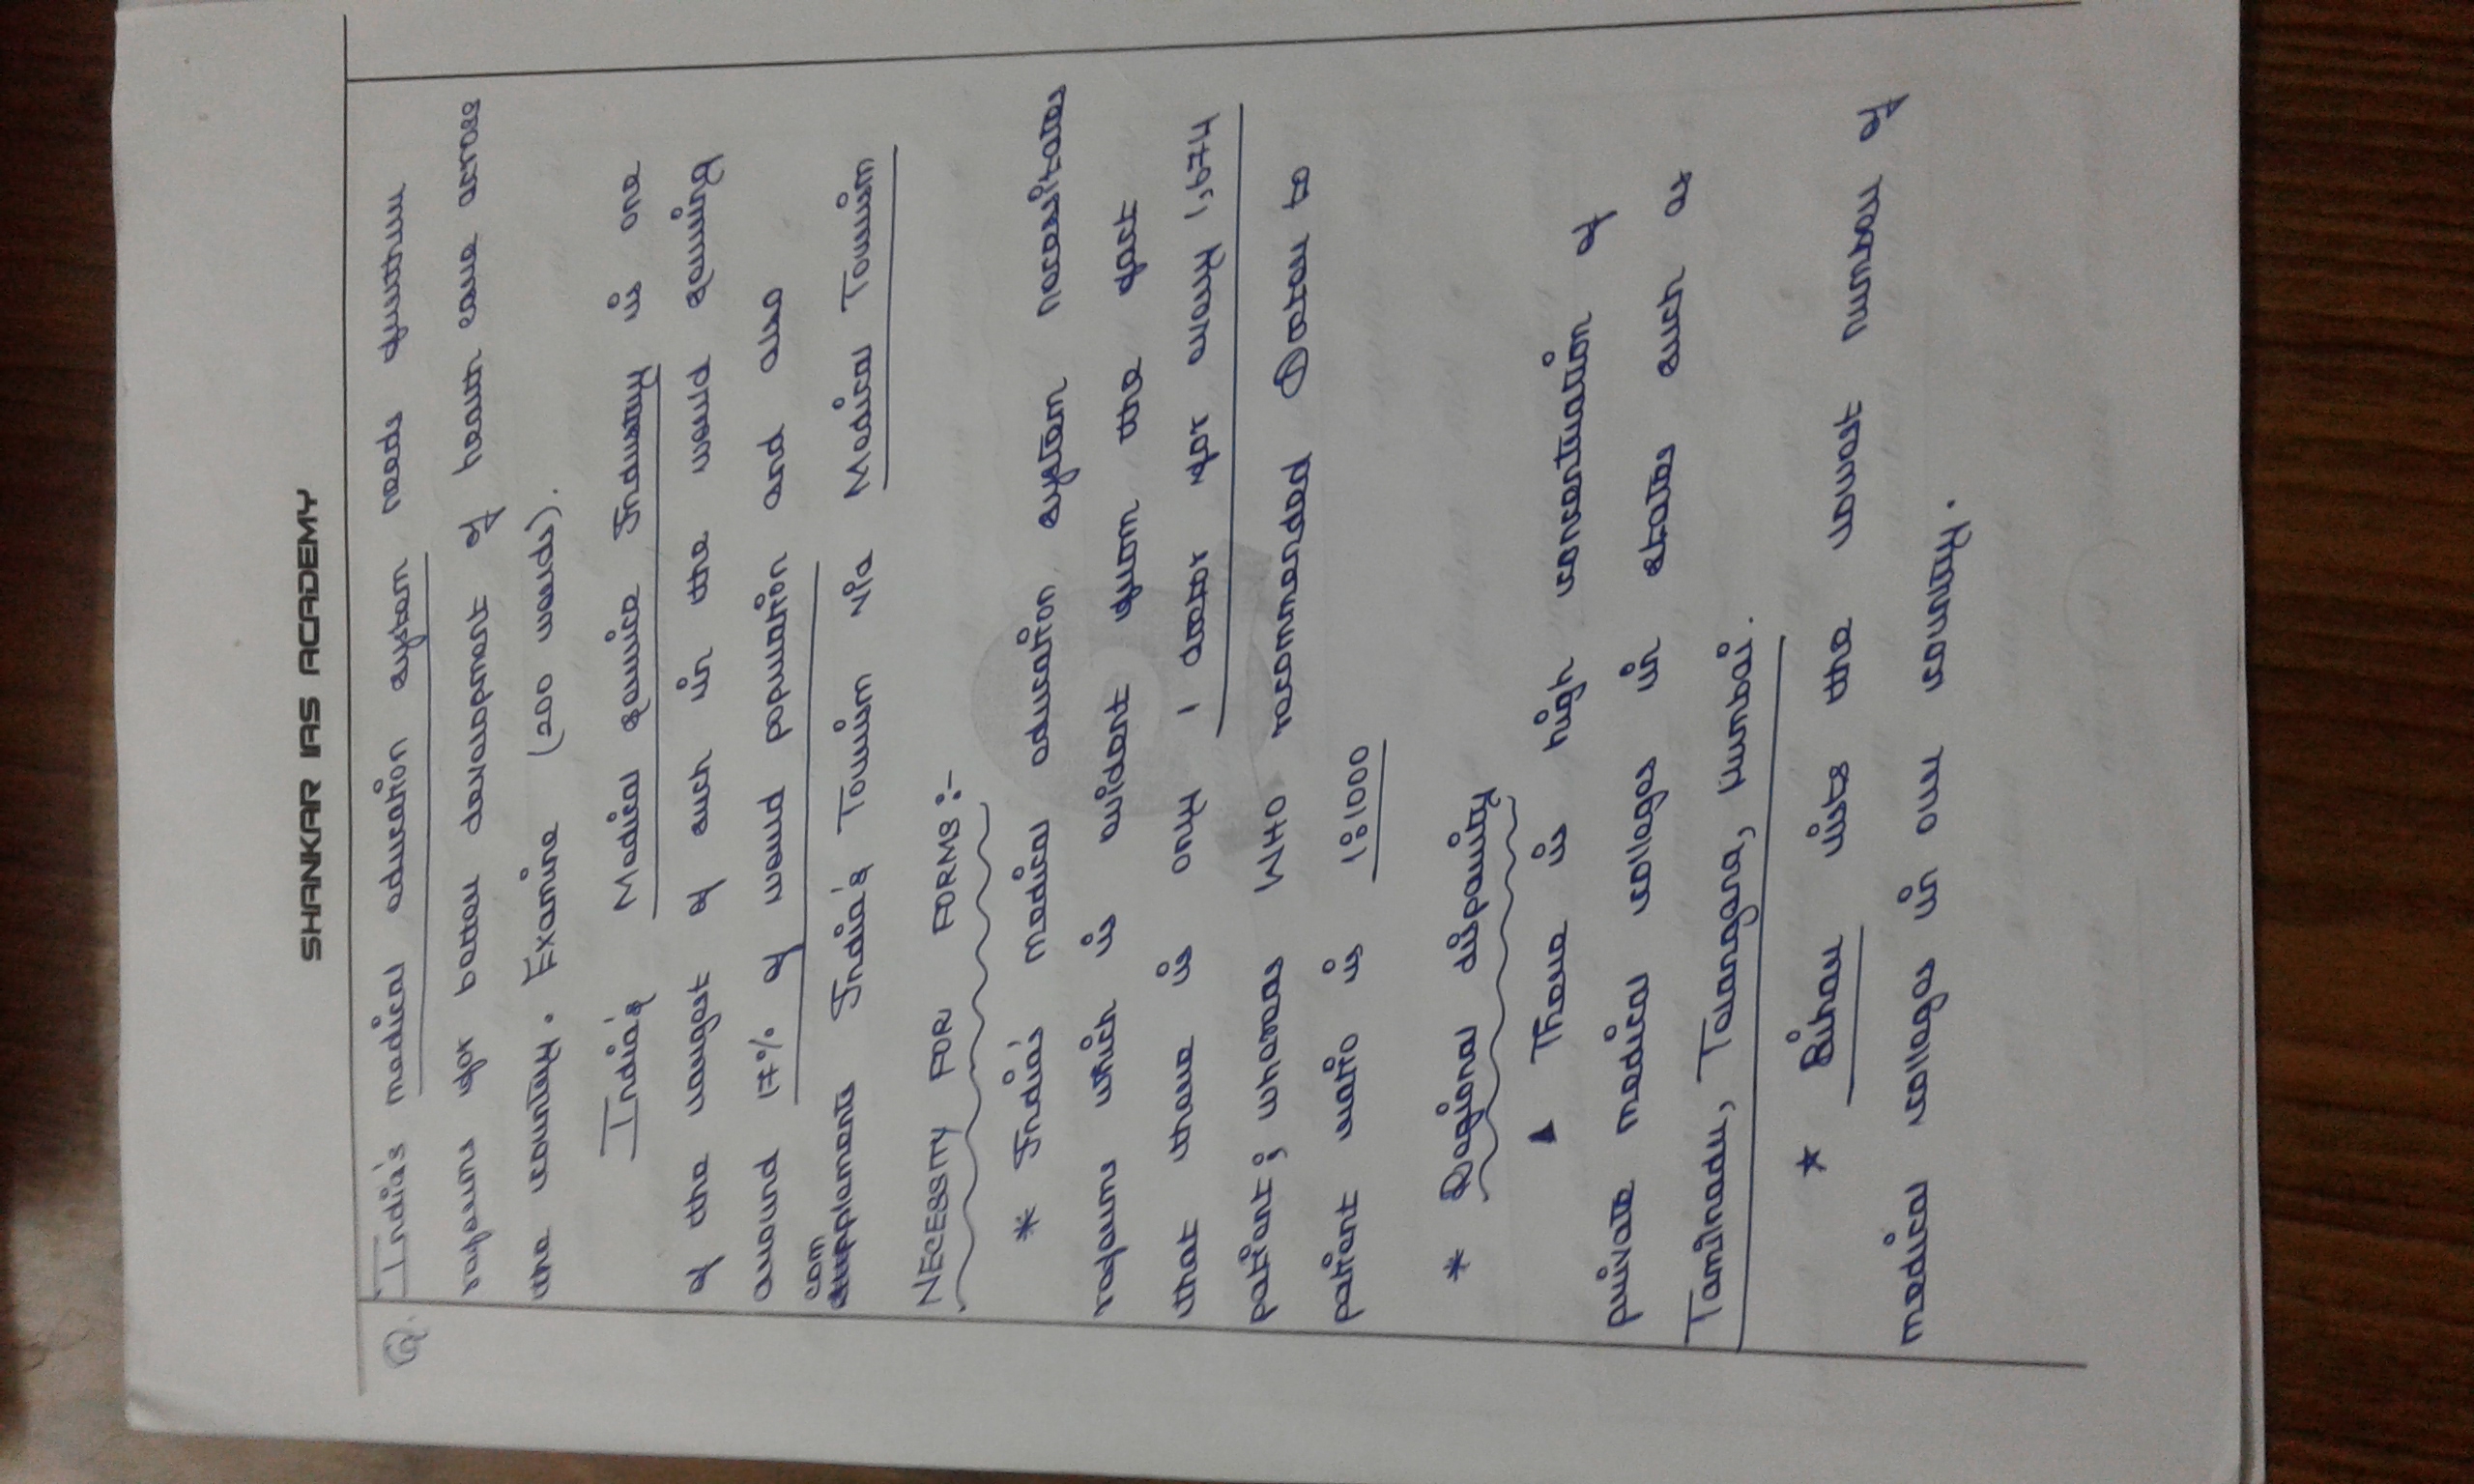 SHANKAR IAS ACADEMY
Q. India's medical education system needs further
reforms for better development of health care across
the country. Examine (200 words).
India's Medical service Industry is one
of the largest of such in the world serving
around 17% of world population and also
complements India's Tourism via Medical Tourism
NECESSITY FOR FORMS:-
* India's medical education system necessitates
reforms which is evident from the fact
that there is only 1 doctor for every 1,674
patient; whereas WHO recommended Doctor to
patient ratio is 1:1000
* Regional disparity
▲ There is high concentration of
private medical colleges in states such as
Tamilnadu, Telangana, Mumbai.
* Bihar lists the lowest number of
medical colleges in our country.